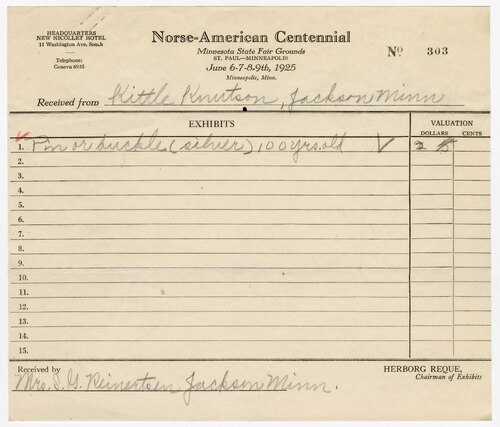 HEADQUARTERS
NEW NICOLLET HOTEL
11 Washington Ave. South
Telephone:
Geneva 6935
Norse-American Centennial
Minnesota State Fair Grounds
ST. PAUL—MINNEAPOLIS
June 6-7-8-9th, 1925
Minneapolis, Minn.
No 303
Received from Kittle Knutson, Jackson Minn
EXHIBITS
VALUATION
DOLLARS CENTS
1. Pin or buckle (silver) 100 yrs. old
2.
3.
4.
5.
6.
7.
8.
9.
10.
11.
12.
13.
14.
15.
Received by
Mrs. S. G. Reinertsen Jackson Minn.
HERBORG REQUE,
Chairman of Exhibits